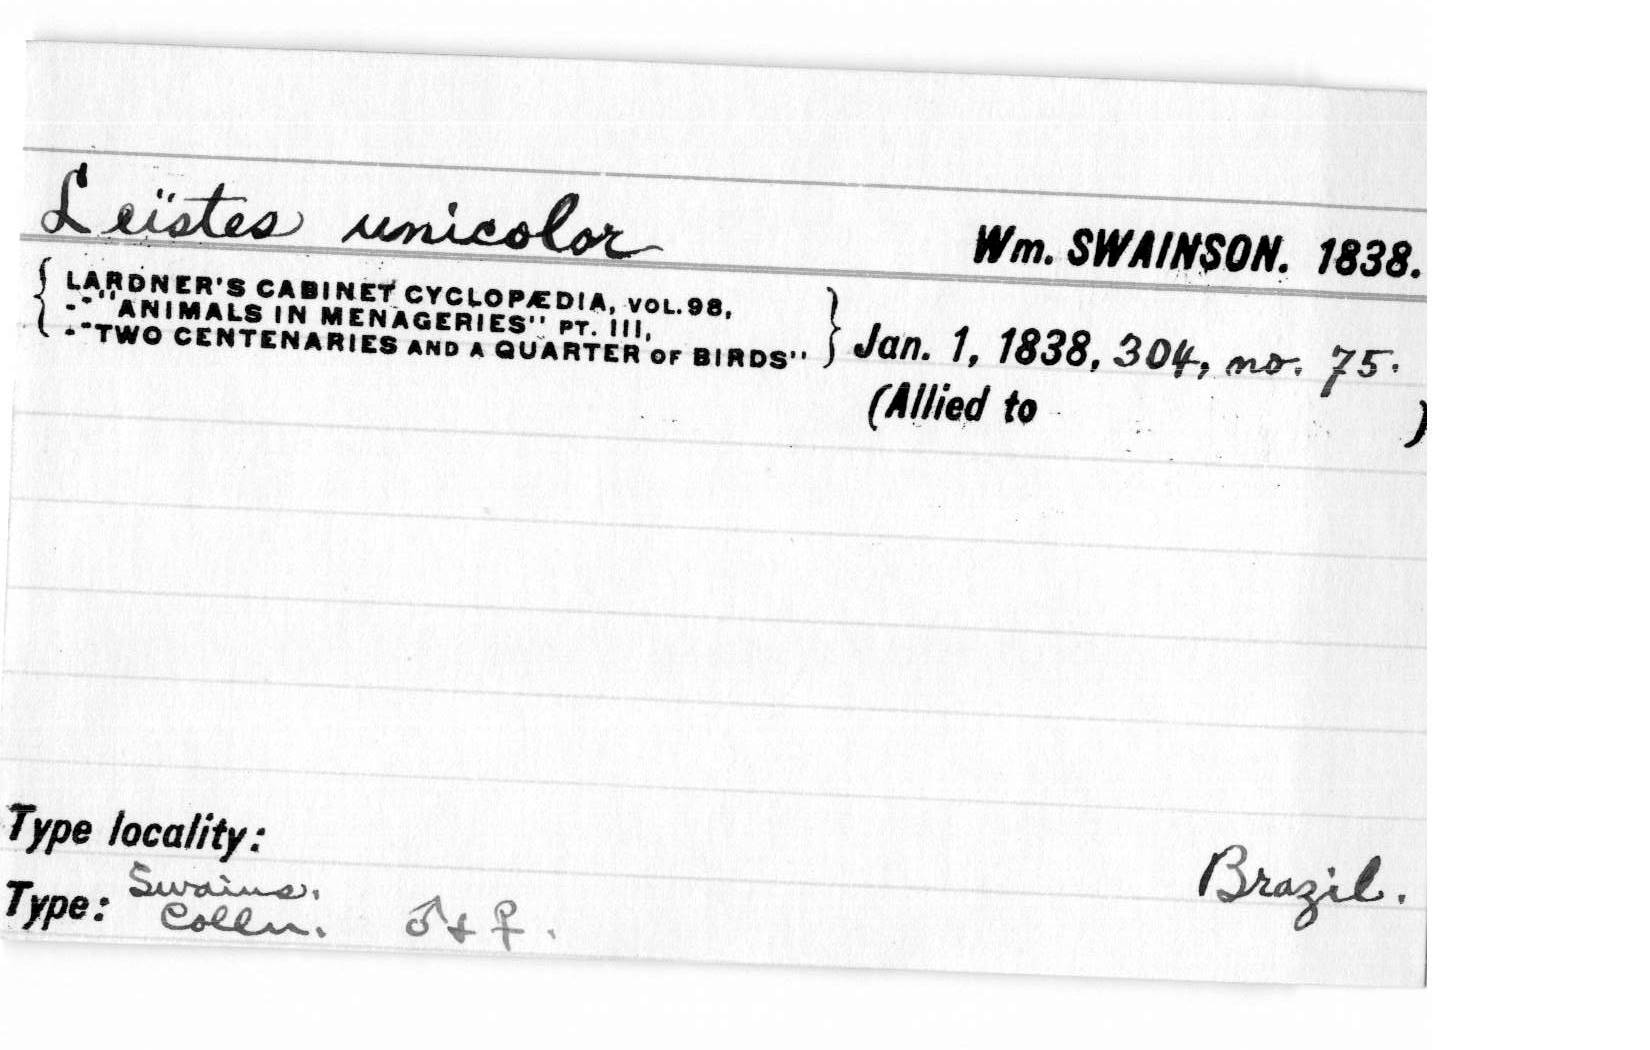 Leïstes unicolor Wm. SWAINSON. 1838.
{ LARDNER'S CABINET CYCLOPÆDIA, VOL. 98,
--"ANIMALS IN MENAGERIES" PT. III,
--"TWO CENTENARIES AND A QUARTER OF BIRDS" } Jan. 1, 1838, 304, no. 75.
(Allied to )
Type locality:
Brazil.
Type: Swains.
Colln. ♂ & ♀.